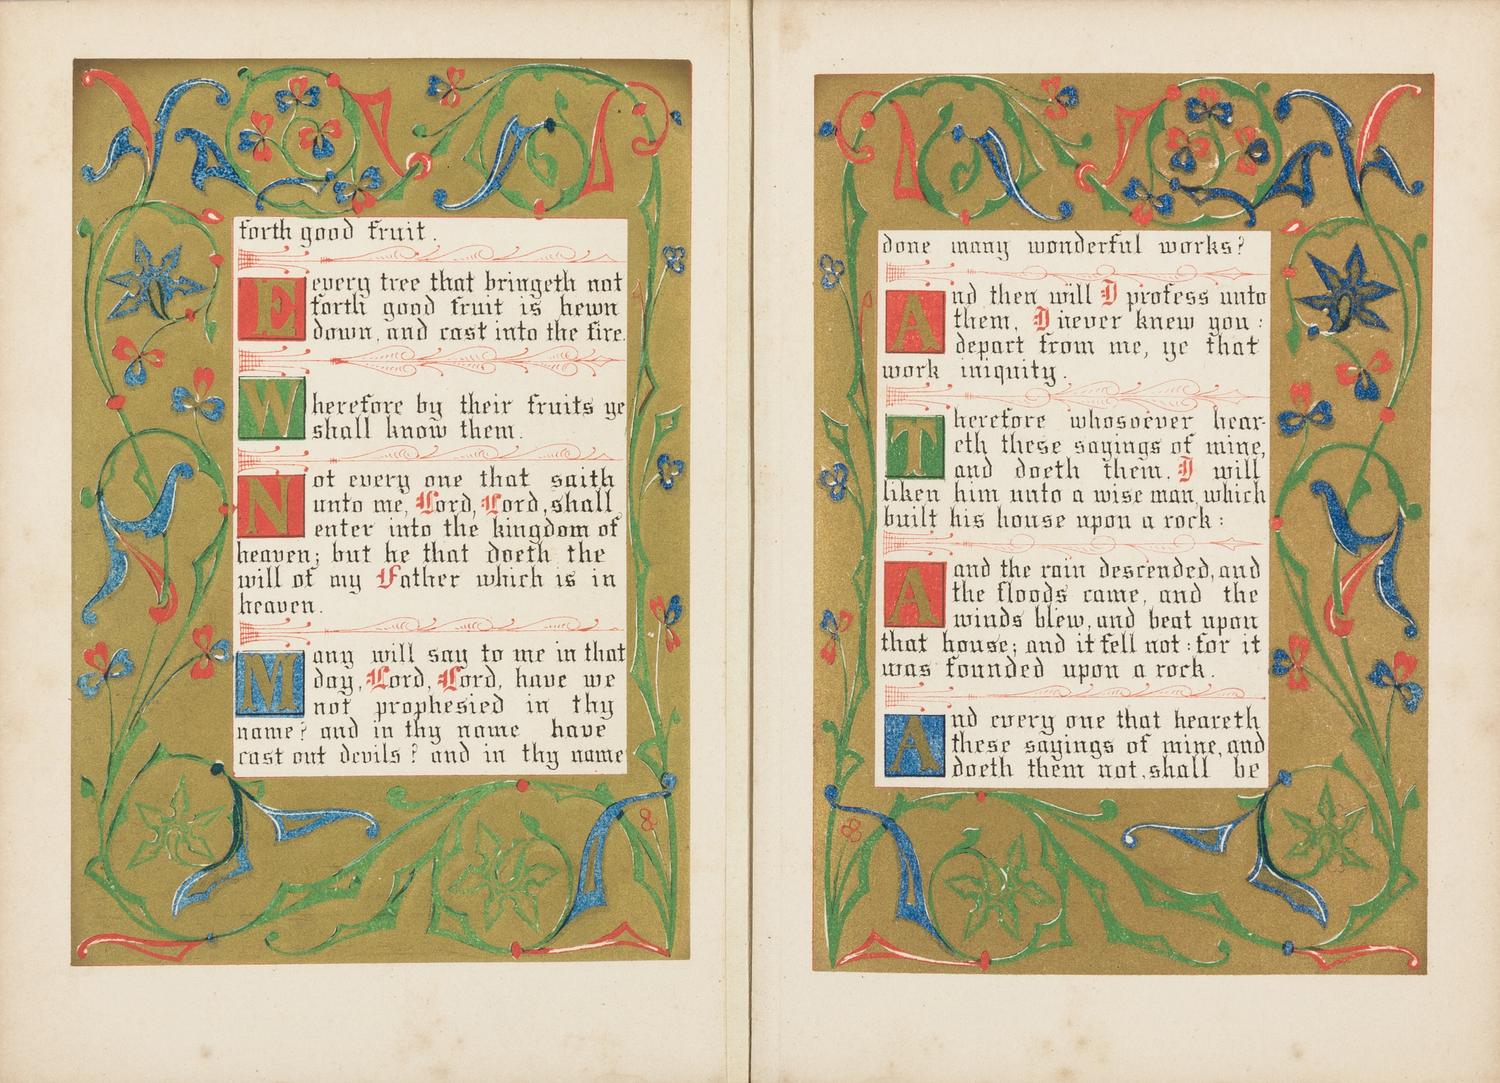 forth good fruit.
Every tree that bringeth not
forth good fruit is hewn
down, and cast into the fire.
Wherefore by their fruits ye
shall know them.
Not every one that saith
unto me, Lord, Lord, shall
enter into the kingdom of
heaven; but he that doeth the
will of my Father which is in
heaven.
Many will say to me in that
day, Lord, Lord, have we
not prophesied in thy
name? and in thy name have
cast out devils? and in thy name
done many wonderful works?
And then will I profess unto
them, I never knew you:
depart from me, ye that
work iniquity.
Therefore whosoever hear-
eth these sayings of mine,
and doeth them, I will
liken him unto a wise man, which
built his house upon a rock:
And the rain descended, and
the floods came, and the
winds blew, and beat upon
that house; and it fell not: for it
was founded upon a rock.
And every one that heareth
these sayings of mine, and
doeth them not, shall be